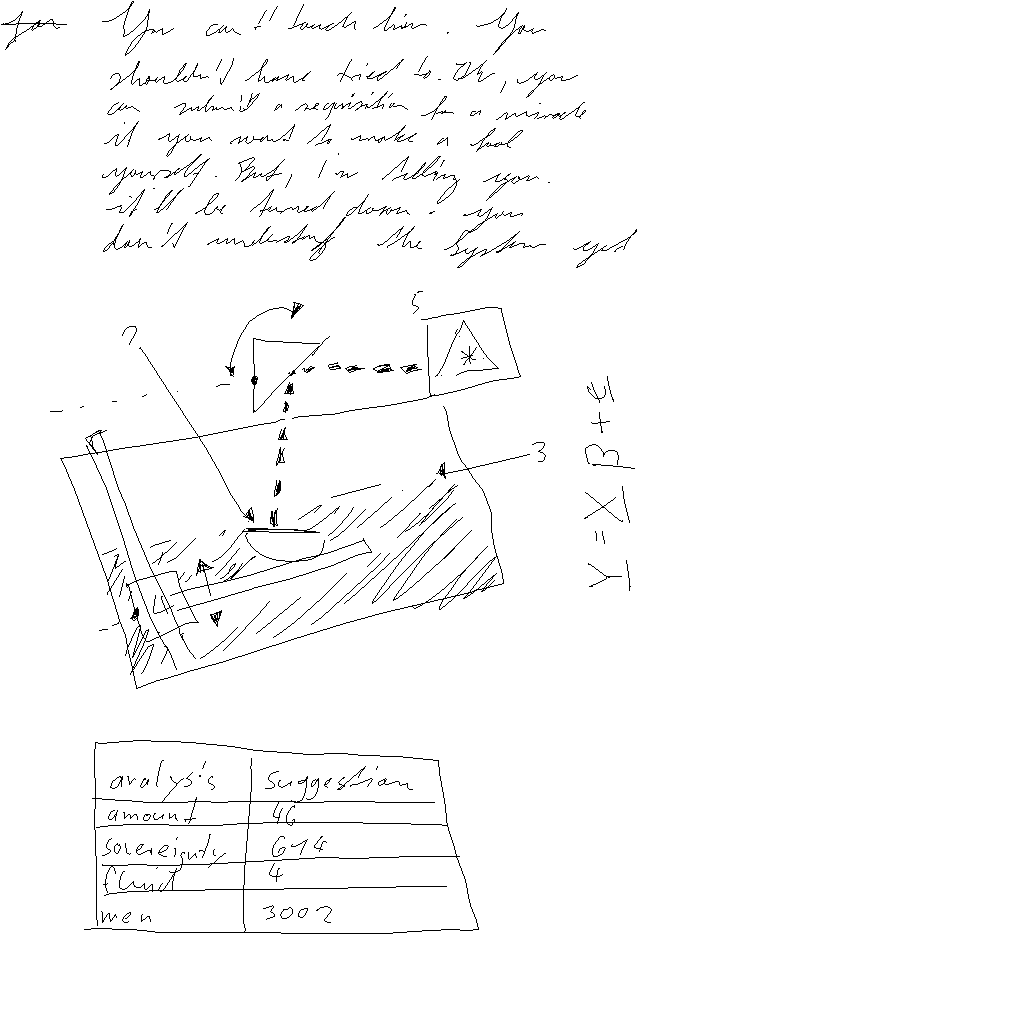 You can't touch him. You
shouldn't have tried to. Oh, you
can submit a requisition for a miracle
if you want to make a fool
yourself. But, I'm telling you.
it'll be turned down. you
don't understand the system yet
5
3
4
Y = X β + ϵ
analysis suggestion
amount 46
sovereignty 614
fluid 4
men 3002